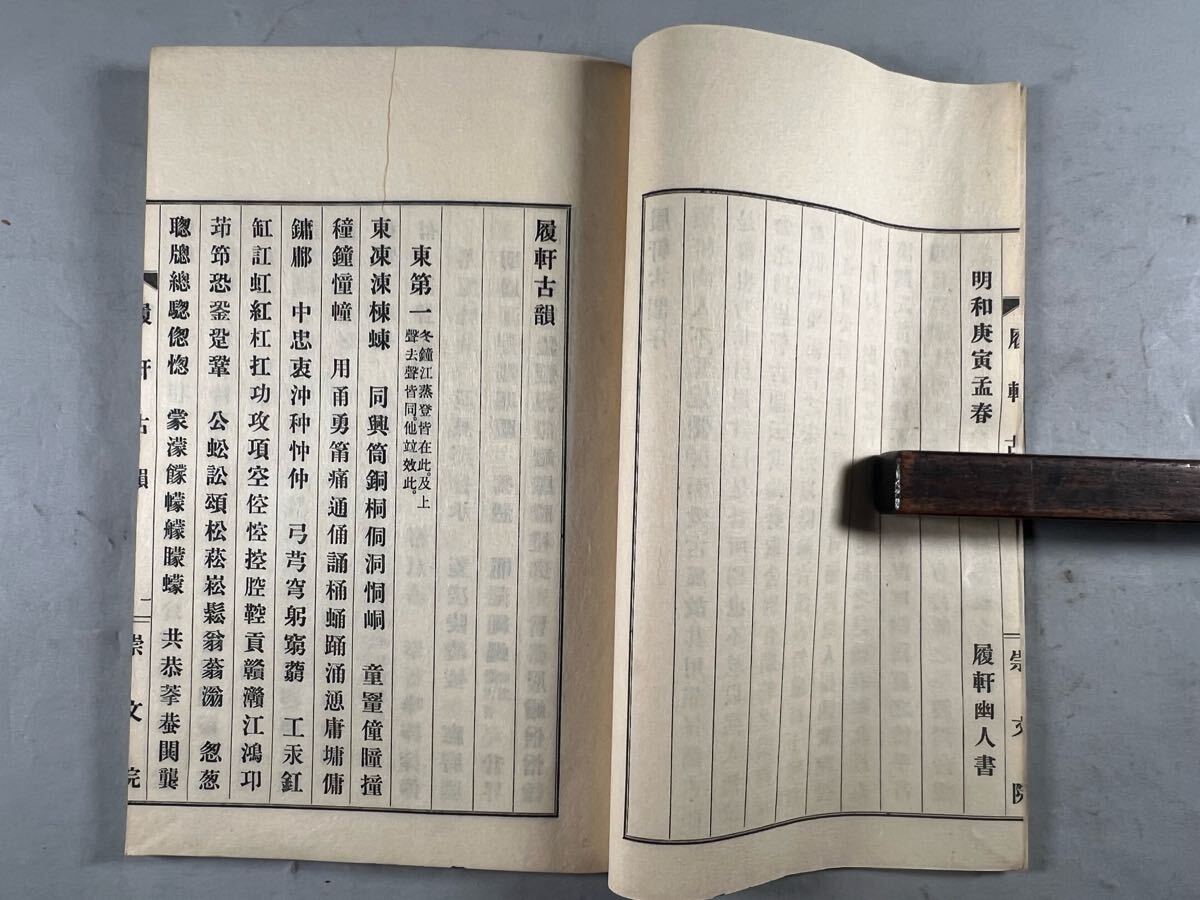 明和庚寅孟春
履軒幽人書
履軒古
崇文院
履軒古韻
東第一
冬鐘江蒸登皆在此。及上
聲去聲皆同。他竝效此。
東凍涷棟蝀 同興筒銅桐侗洞恫峒 童罿僮瞳撞
穜鐘憧幢 用甬勇筩痛通俑誦桶蛹踊涌慂庸墉傭
鏞鄘 中忠衷沖种忡仲 弓芎穹躬窮藭 工汞釭
缸訌虹紅杠扛功攻項空倥悾控腔鞚貢贛灨江鴻印
茆筇恐銎跫鞏 公蚣訟頌松菘崧鬆翁蓊滃 怱蔥
聰牕總驄偬惚 蒙濛饛幪艨矇蠓 共恭拲蛬閧龔
履軒古韻
二
崇文院